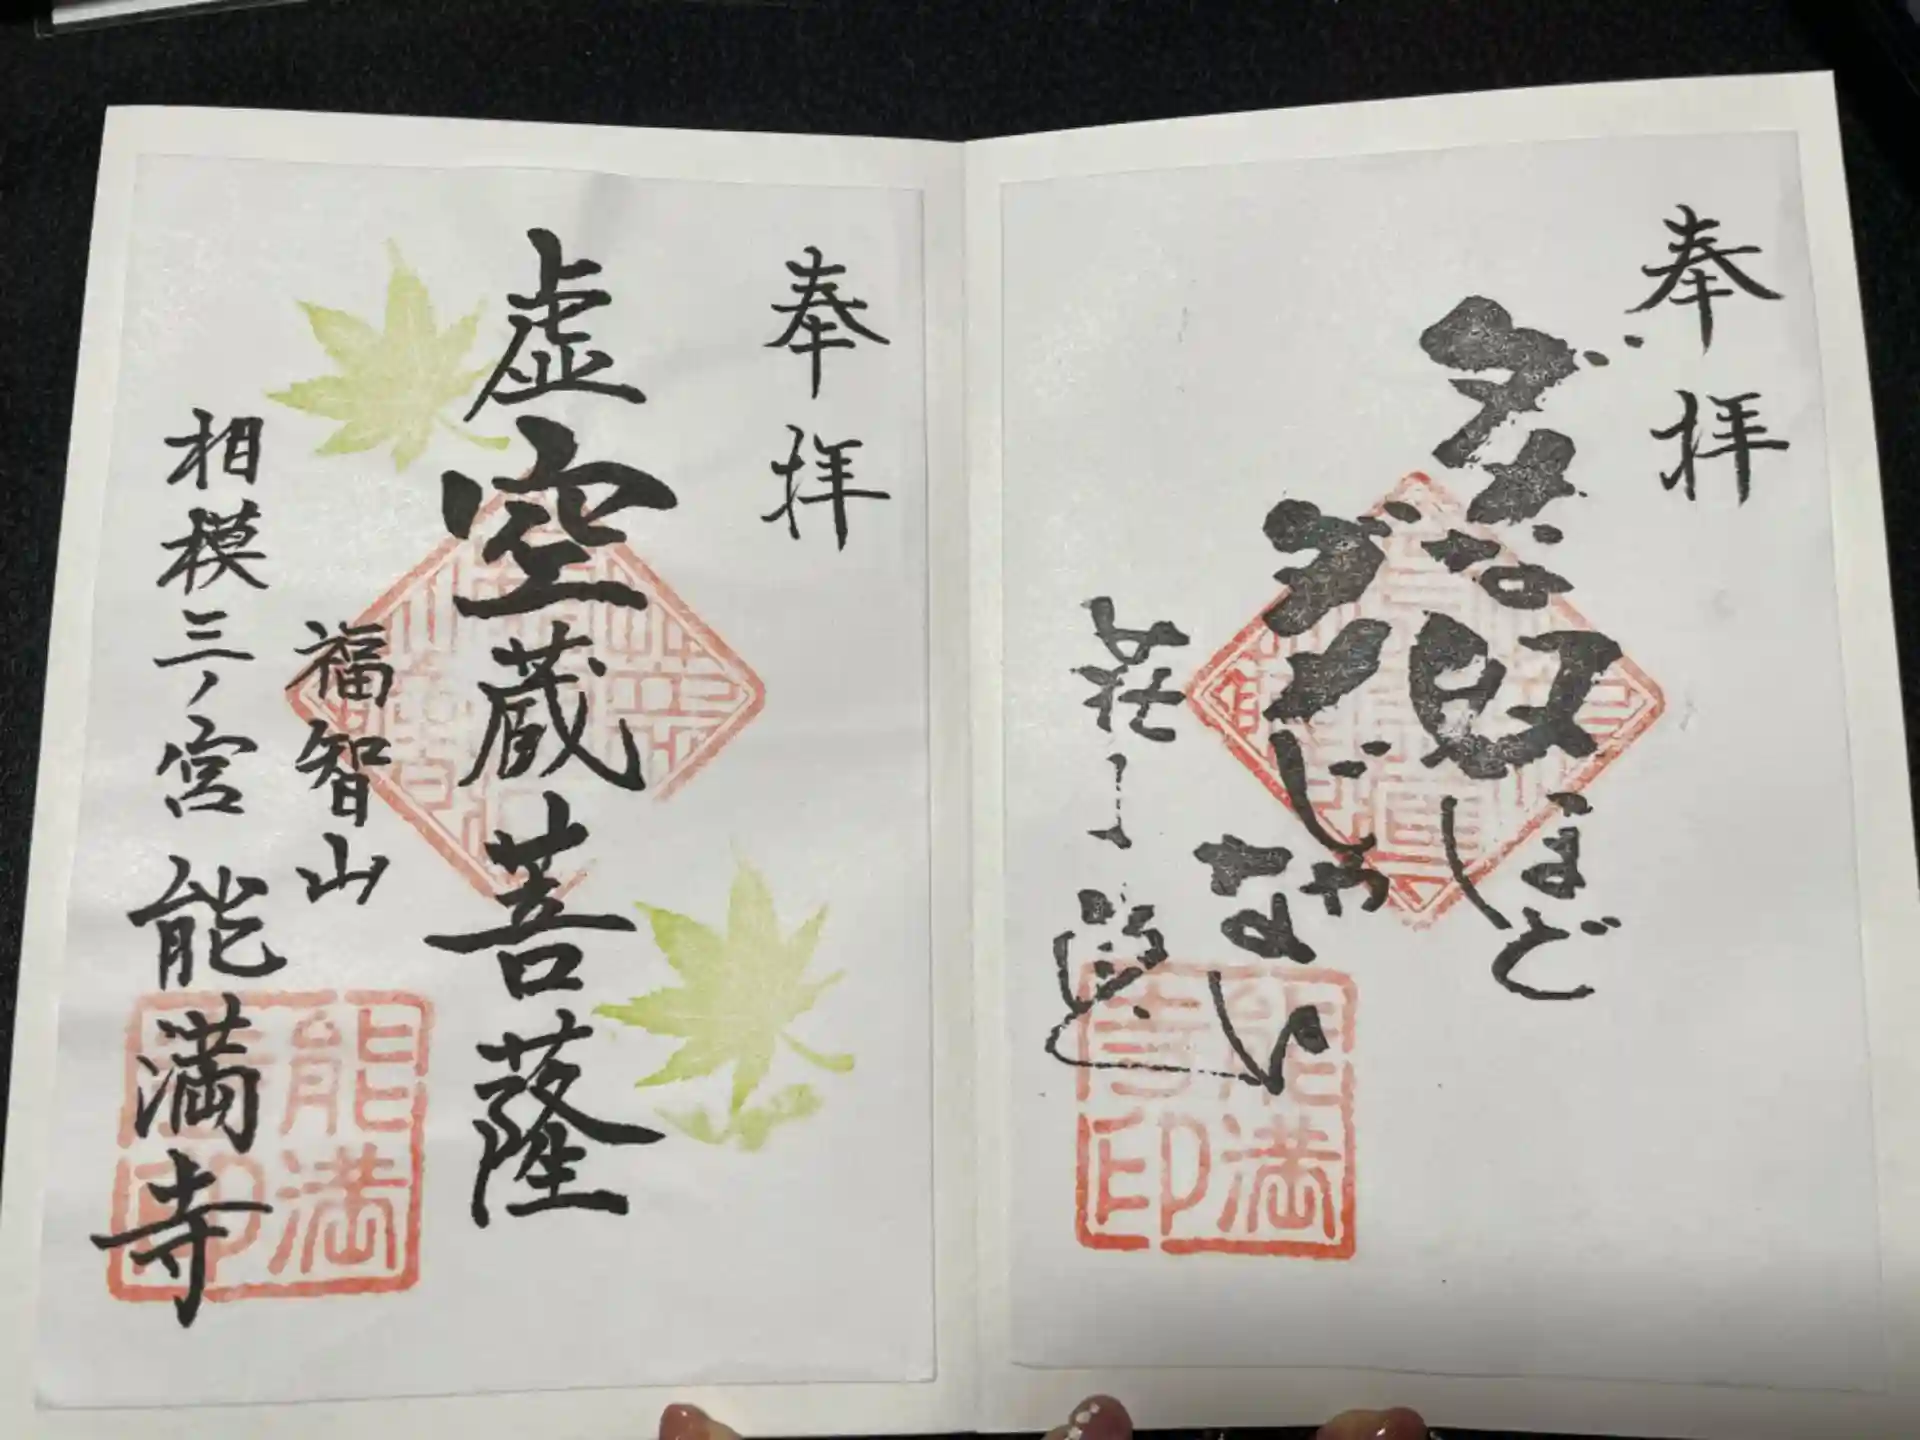 奉拝
ダメな奴ほど
ダメじゃ
ない
能満
寺印
奉拝
虚空蔵菩薩
福智山
相模三ノ宮 能満寺
能満
寺印